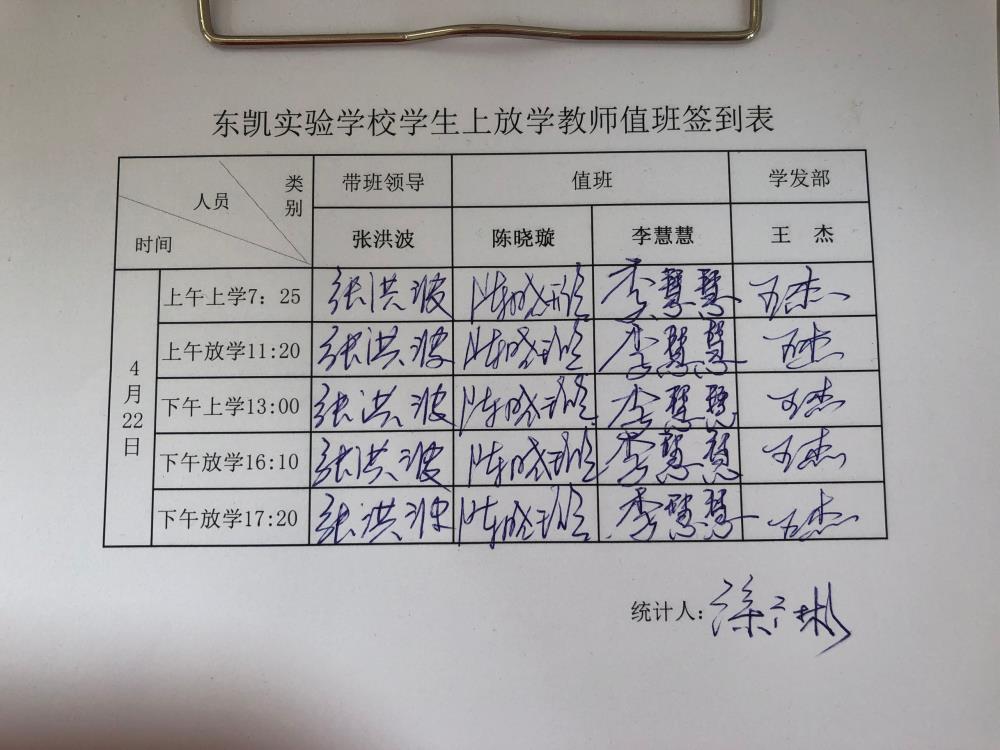 东凯实验学校学生上放学教师值班签到表
类别 人员 时间 带班领导 值班 学发部
张洪波 陈晓璇 李慧慧 王 杰
4月22日
上午上学7：25 张洪波 陈晓璇 李慧慧 王杰
上午放学11:20 张洪波 陈晓璇 李慧慧 王杰
下午上学13:00 张洪波 陈晓璇 李慧慧 王杰
下午放学16:10 张洪波 陈晓璇 李慧慧 王杰
下午放学17:20 张洪波 陈晓璇 李慧慧 王杰
统计人: